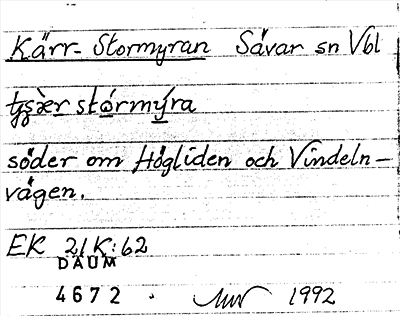 Kärr-Stormyran Sävar sn Vbl
tjsær stórmýra
söder om Högliden och Vindeln-
vägen.
EK 21K:62
DAUM
4672. 1992